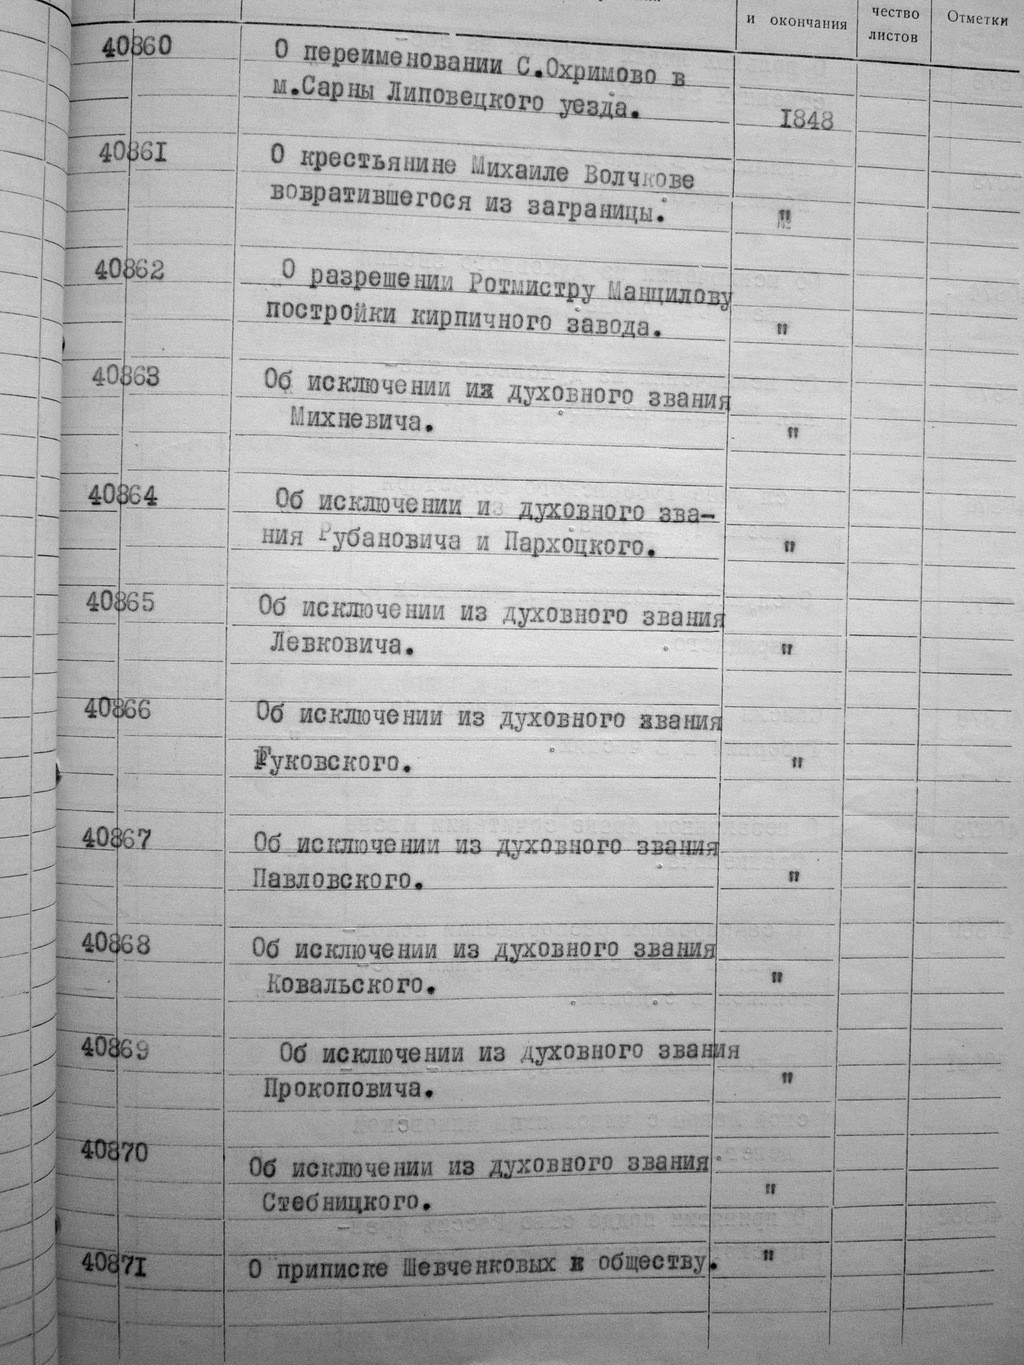 и окончания
чество
листов
Отметки
40860
О переименовании С.Охримово в
м.Сарны Липовецкого уезда.
1848
40861
О крестьянине Михаиле Волчкове
вовратившегося из заграницы.
"
40862
О разрешении Ротмистру Манцилову
постройки кирпичного завода.
"
40863
Об исключении из духовного звания
Михневича.
"
40864
Об исключении из духовного зва-
ния Рубановича и Пархоцкого.
"
40865
Об исключении из духовного звания
Левковича.
"
40866
Об исключении из духовного звания
Гуковского.
"
40867
Об исключении из духовного звания
Павловского.
"
40868
Об исключении из духовного звания
Ковальского.
"
40869
Об исключении из духовного звания
Прокоповича.
"
40870
Об исключении из духовного звания
Стебницкого.
"
40871
О приписке Шевченковых к обществу.
"